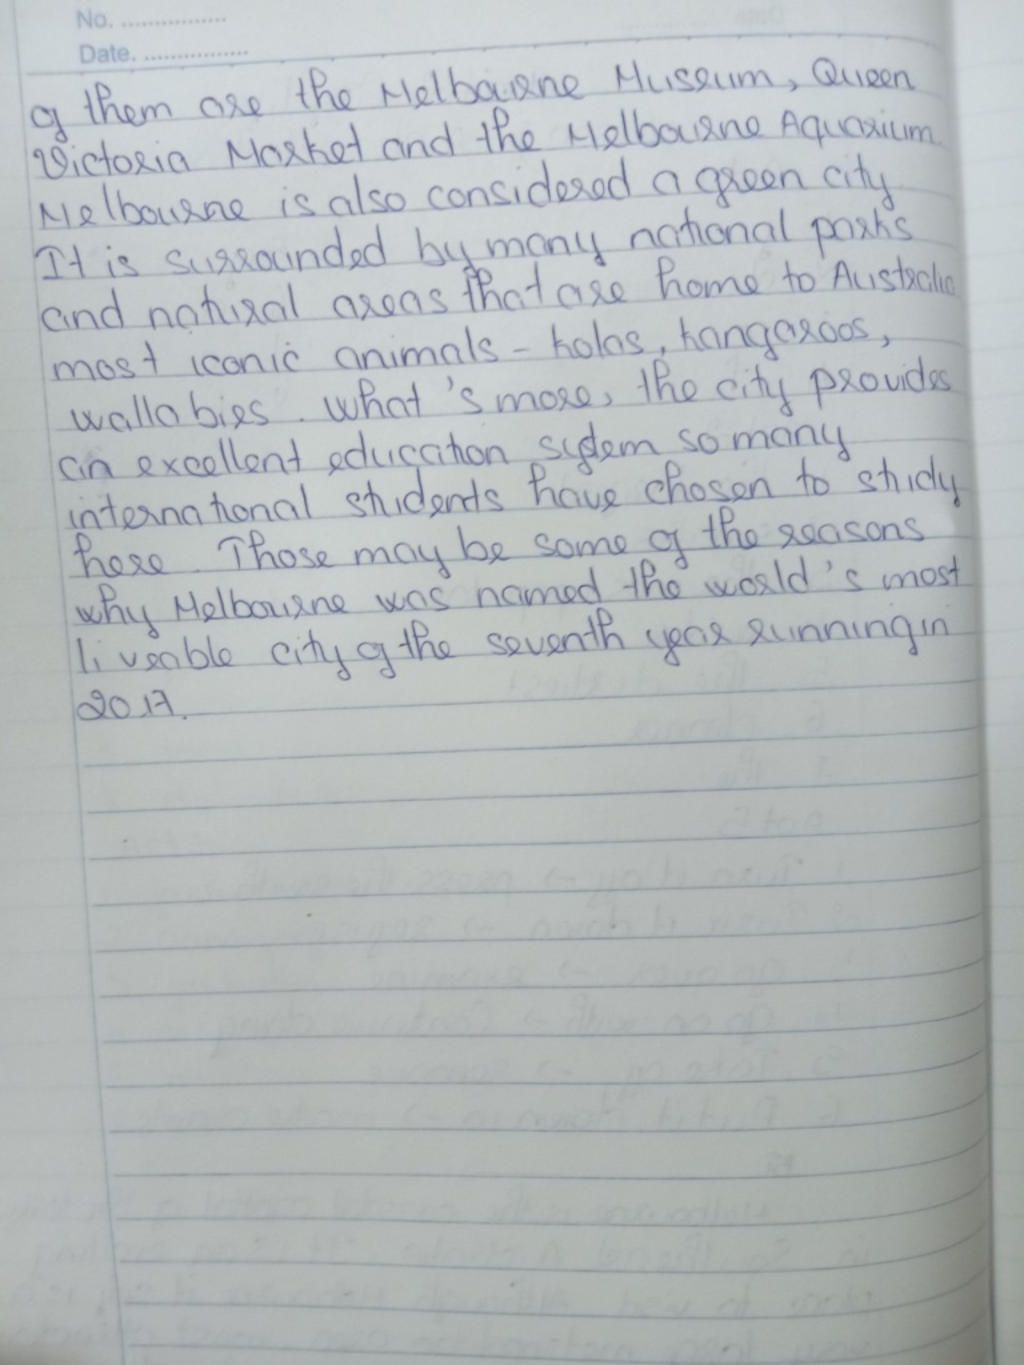 No. ................
Date. ................
of them are the Melbourne Museum, Queen
Victoria Market and the Melbourne Aquarium.
Melbourne is also considered a green city
It is surrounded by many national parks
and natural areas that are home to Australia
most iconic animals - kolas, kangaroos,
wallabies. What's more, the city provides
an excellent education system so many
international students have chosen to study
here. Those may be some of the reasons
why Melbourne was named the world's most
liveable city of the seventh year running in
2017.